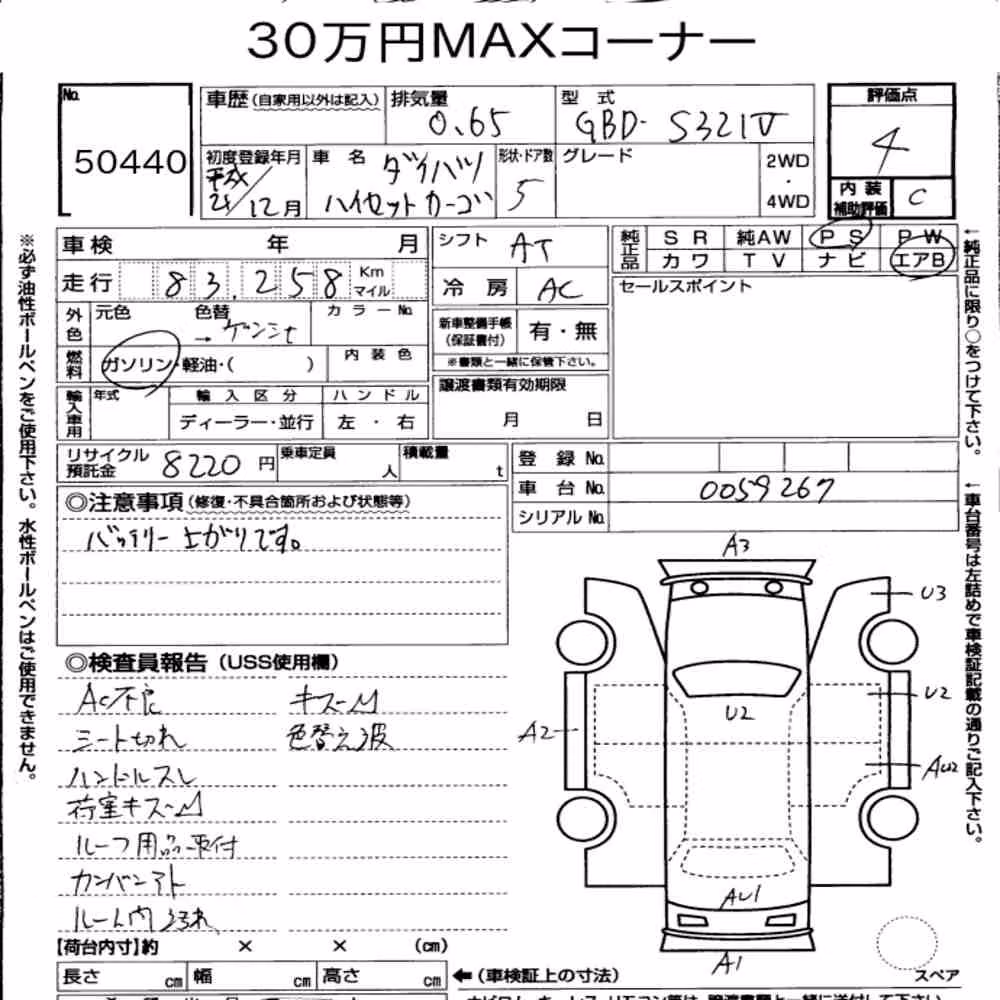 30万円MAXコーナー
No.
50440
車歴(自家用以外は記入)
排気量
0.65
型式
GBD-S321V
評価点
4
内装
補助評価
C
初度登録年月
平成
21/12月
車名
ダイハツ
ハイゼットカーゴ
形状・ドア数
5
グレード
2WD
・
4WD
車検 年 月
走行 83.258 Km
マイル
外色
元色
色替
→ ゲンシt
カラーNo.
燃料
ガソリン・軽油・( )
内装色
輸入車用
年式
輸入区分
ディーラー・並行
ハンドル
左・右
シフト AT
冷房 AC
新車整備手帳
(保証書付)
有・無
※書類と一緒に保管下さい。
譲渡書類有効期限
月 日
純正品
SR 純AW PS PW
カワ TV ナビ エアB
セールスポイント
リサイクル
預託金
8220円
乗車定員
人
積載量
t
登録No.
車台No. 0059267
シリアルNo.
◎注意事項(修復・不具合箇所および状態等)
バッテリー上がりです。
◎検査員報告(USS使用欄)
AC不良 キズ~凹
シート切れ 色替え波
ハンドルスレ
荷室キズ~凹
ルーフ用品取付
カンバンアト
ルーム内汚れ
【荷台内寸】約 × × (cm)
長さ cm 幅 cm 高さ cm
←(車検証上の寸法)
A3
U3
U2
U2
A2
AU2
AU1
A1
スペア
※必ず油性ボールペンをご使用下さい。水性ボールペンはご使用できません。
←純正品に限り○をつけて下さい。
←車台番号は左詰めで車検証記載の通りご記入下さい。